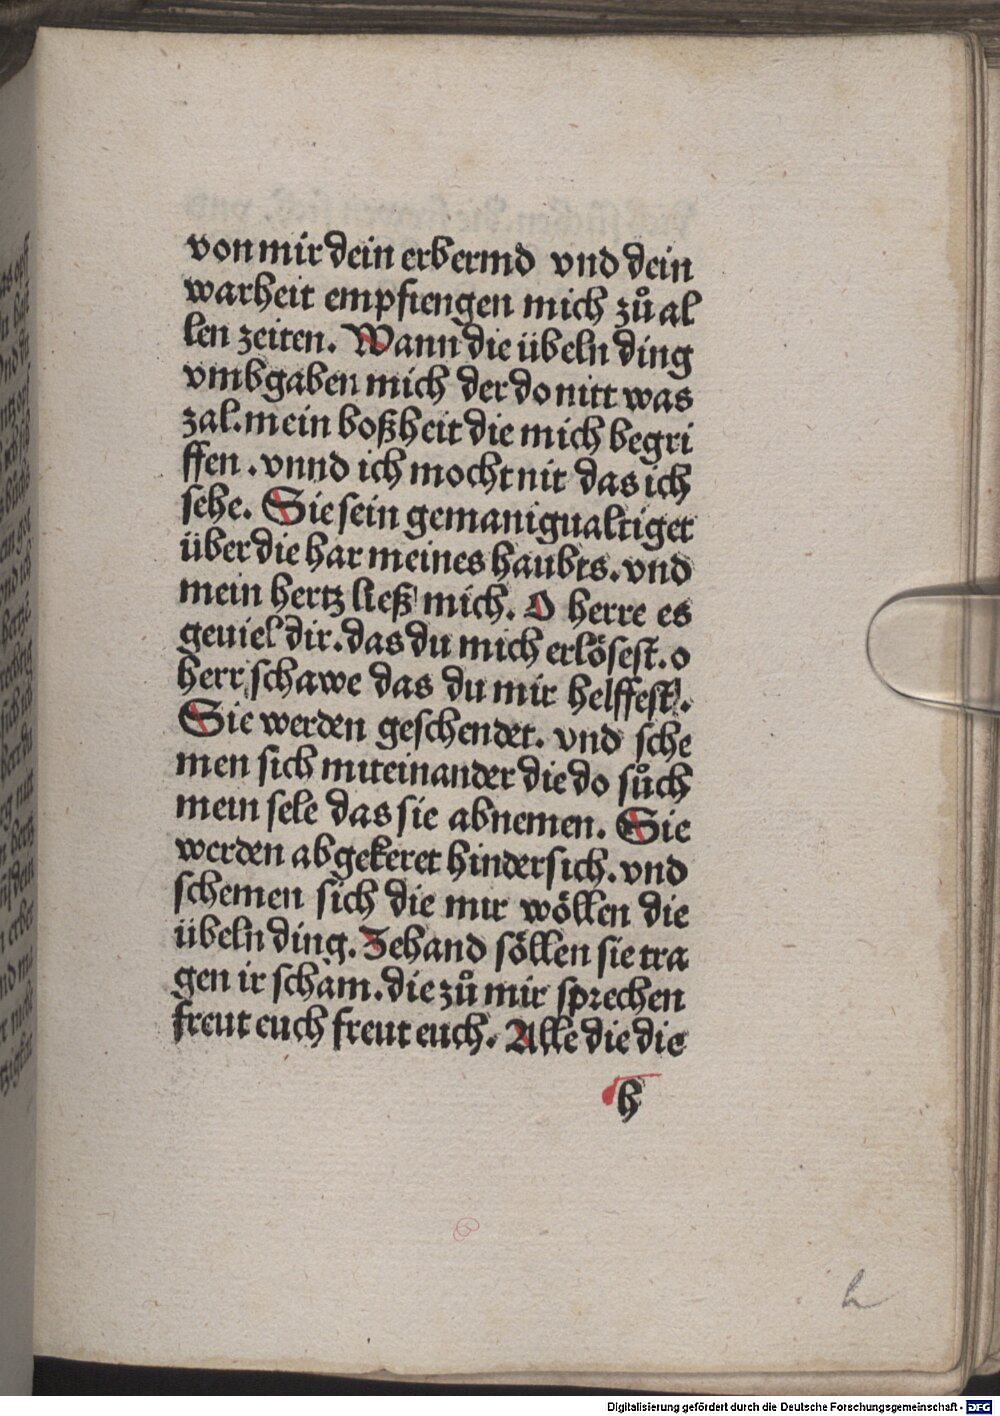 von mir dein erbermd vnd dein
warheit empfiengen mich zů al
len zeiten. Wann die übeln ding
vmbgaben mich der do nitt was
zal. mein boßheit die mich begri
ffen. vnnd ich mocht nit das ich
sehe. Sie sein gemanigualtiget
über die har meines haubts. vnd
mein hertz ließ mich. O herre es
geuiel dir. das du mich erlösest. o
herr schawe das du mir helffest.
Sie werden geschendet. vnd sche
men sich miteinander die do sůch
mein sele das sie abnemen. Sie
werden abgekeret hindersich. vnd
schemen sich die mir wöllen die
übeln ding. Zehand söllen sie tra
gen ir scham. die zů mir sprechen
freut euch freut euch. Alle die die
h
h
Digitalisierung gefördert durch die Deutsche Forschungsgemeinschaft - DFG